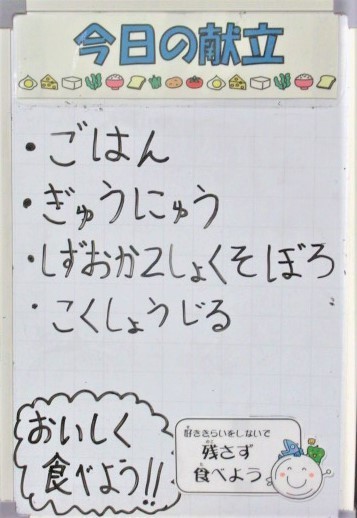 今日の献立
・ごはん
・ぎゅうにゅう
・しずおか2しょくそぼろ
・こくしょうじる
おいしく
食べよう!!
好ききらいをしないで
残さず
食べよう